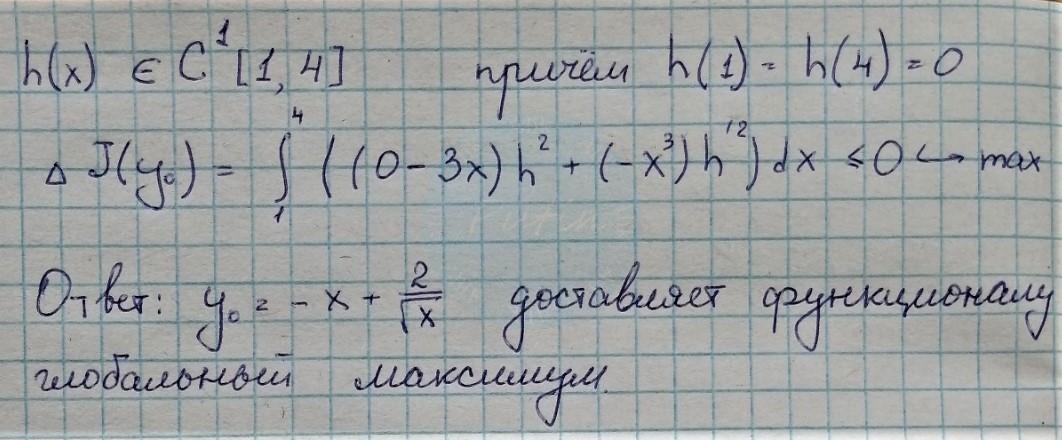 h(x) ∈ C¹[1, 4] причём h(1) = h(4) = 0
Δ J(y₀) = ∫₁⁴ ((0 - 3x) h² + (-x³) h'²) dx ≤ 0 ↪ max
Ответ: y₀ = - x + 2/√x доставляет функционалу
глобальный максимум.